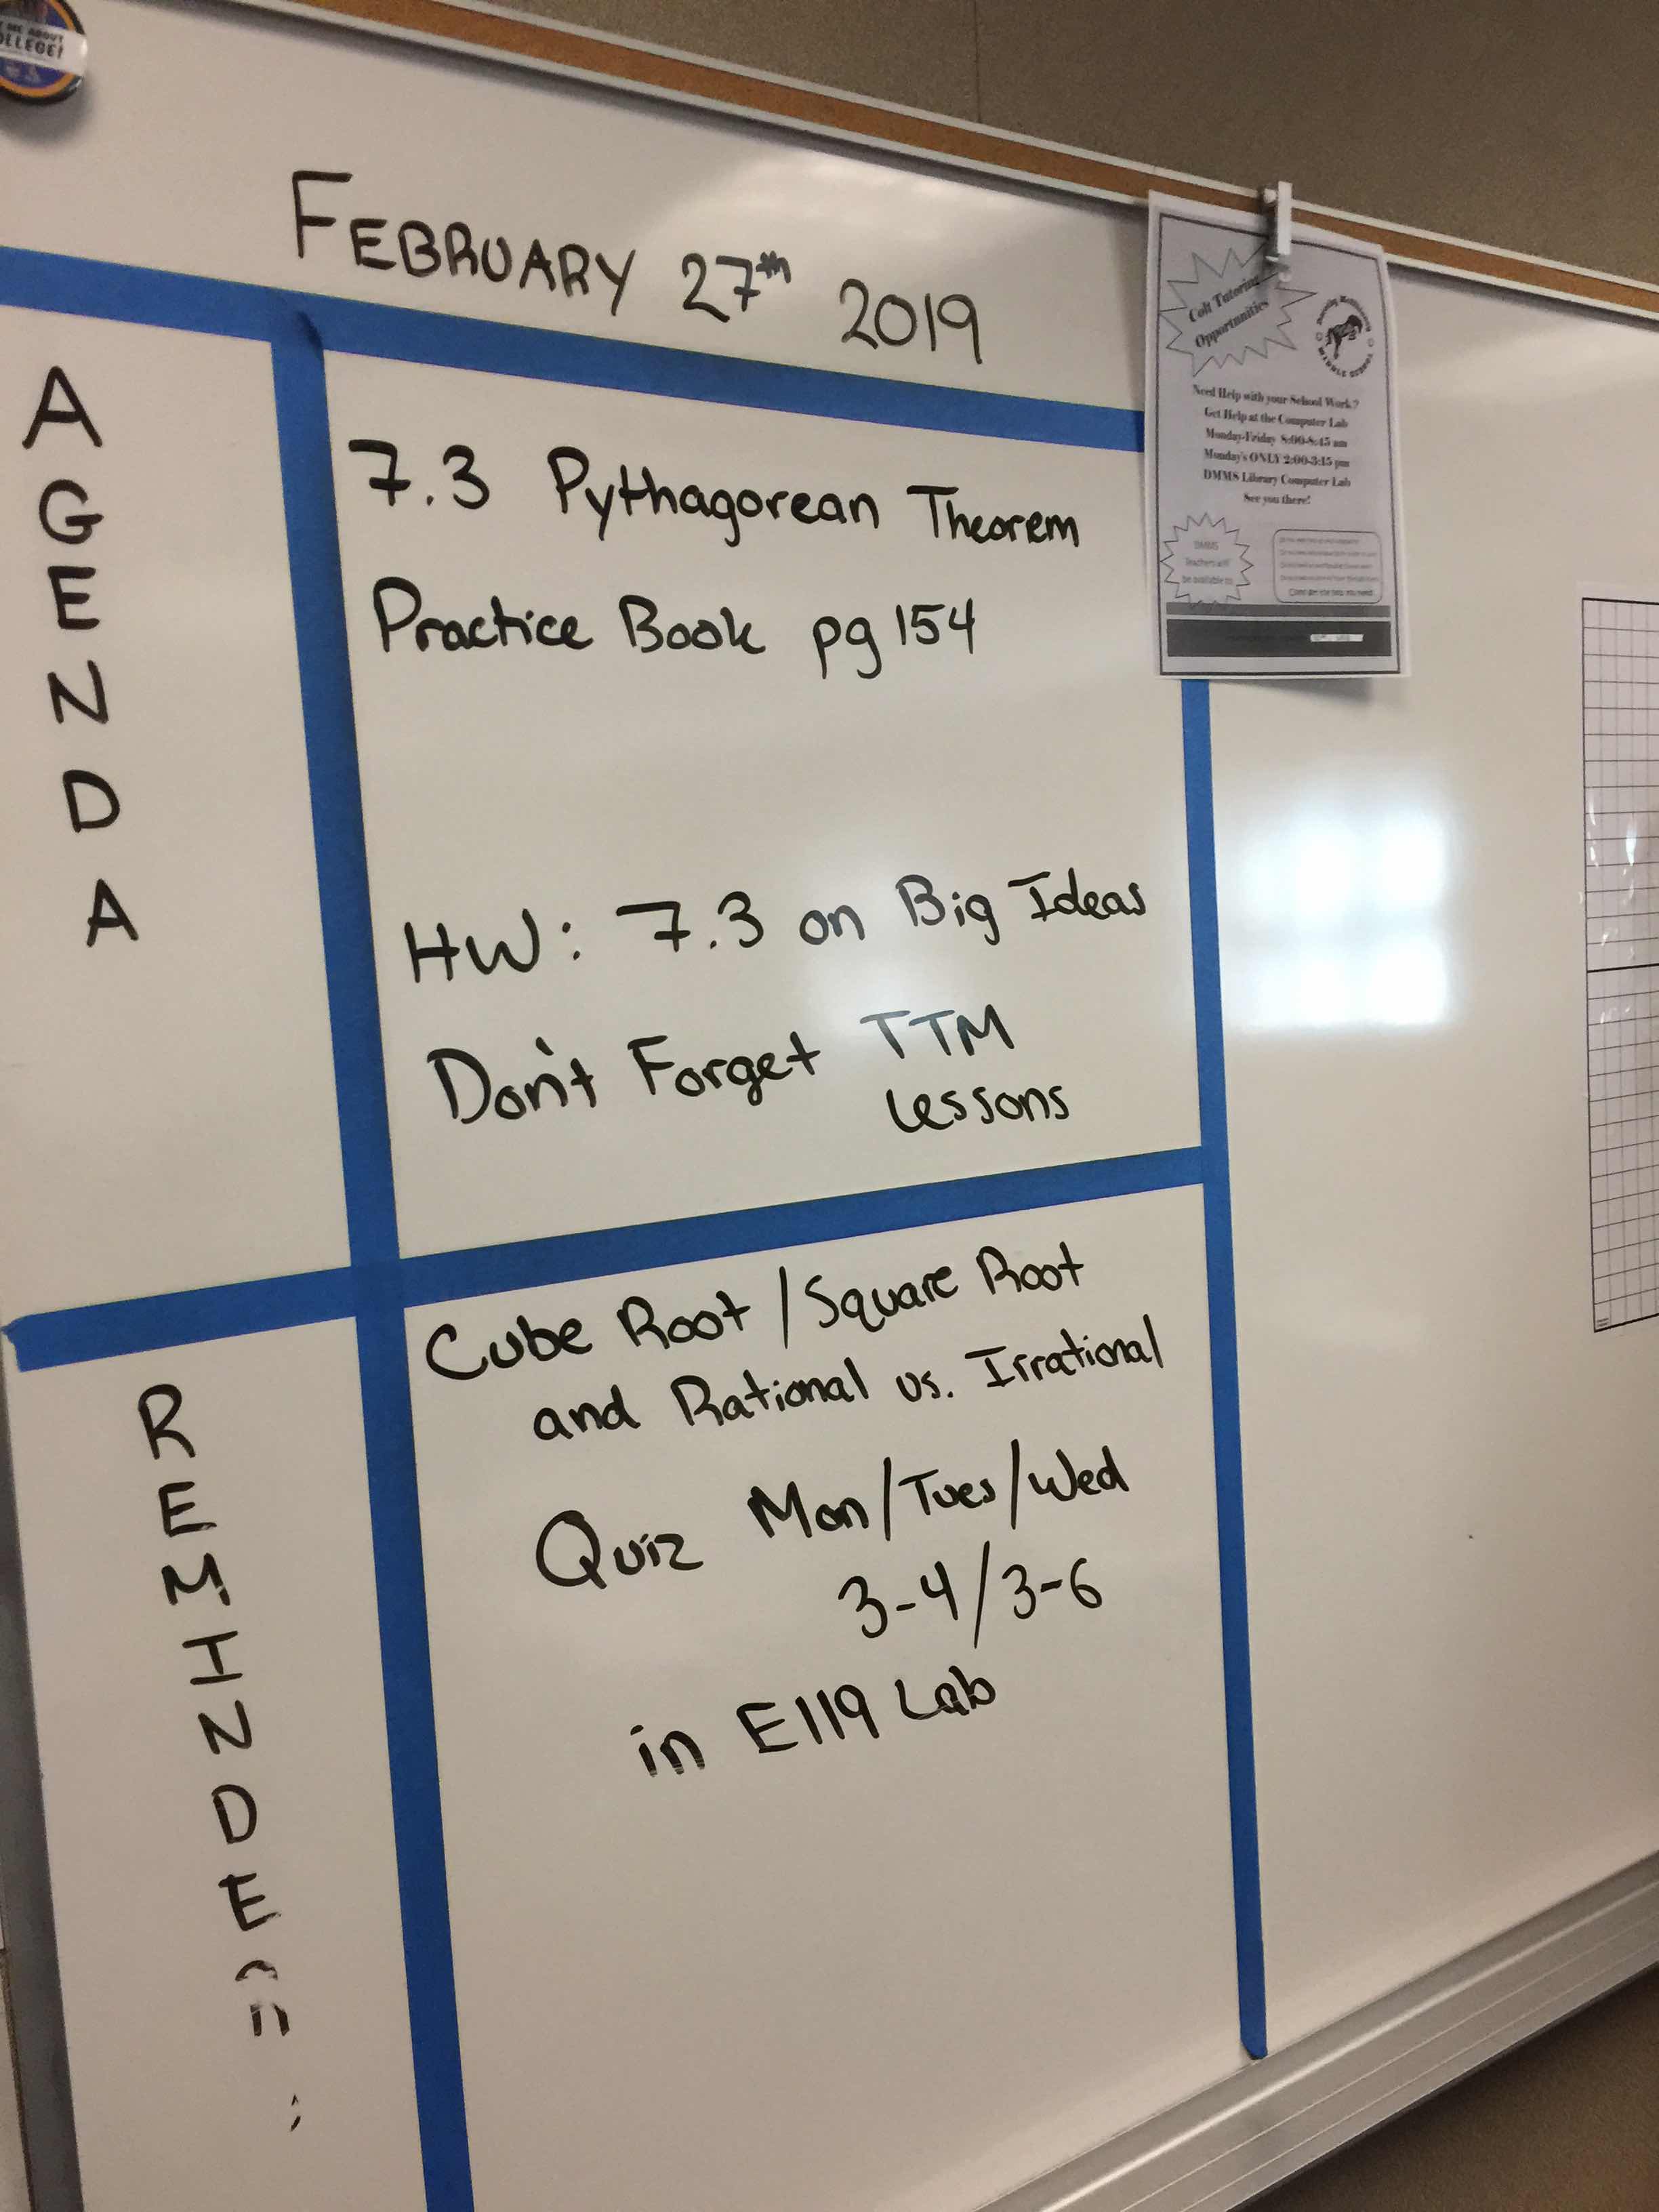 ME ABOUT
COLLEGE!
FEBRUARY 27th 2019
A
G
E
N
D
A
7.3 Pythagorean Theorem
Practice Book pg 154
HW: 7.3 on Big Ideas
Don't Forget TTM
Lessons
R
E
M
I
N
D
E
Cube Root / Square Root
and Rational vs. Irrational
Quiz Mon/Tues/Wed
3-4/3-6
in E119 Lab
Colt Tutoring
Opportunities
MIDDLE SCHOOL
Need Help with your School Work?
Get Help at the Computer Lab
Monday-Friday 8:00-8:45 am
Monday's ONLY 2:00-3:15 pm
DMMS Library Computer Lab
See you there!
DMMS
Teachers will
be available to